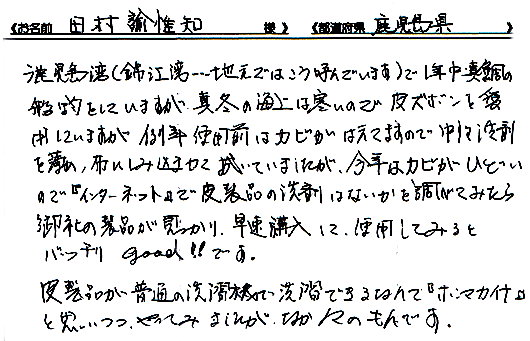 《お名前 田村 諭惟知 様》《都道府県 鹿児島県 》
鹿児島湾(錦江湾…地元ではこう呼んでいます)で1年中真鯛の
船釣をしていますが、真冬の海上は寒いので皮ズボンを愛
用していますが 例年 使用前はカビがはえてますので中性洗剤
を薄め、布にしみ込ませて拭いていましたが、今年はカビがひどい
ので『インターネット』で皮製品の洗剤はないかを調べてみたら
御社の製品が見つかり、早速購入して、使用してみると
バッチリ good!!です。
皮製品が普通の洗濯機で洗濯できるなんて『ホンマカイナ』
と思いつつ、やってみましたが、なかなかのもんです。